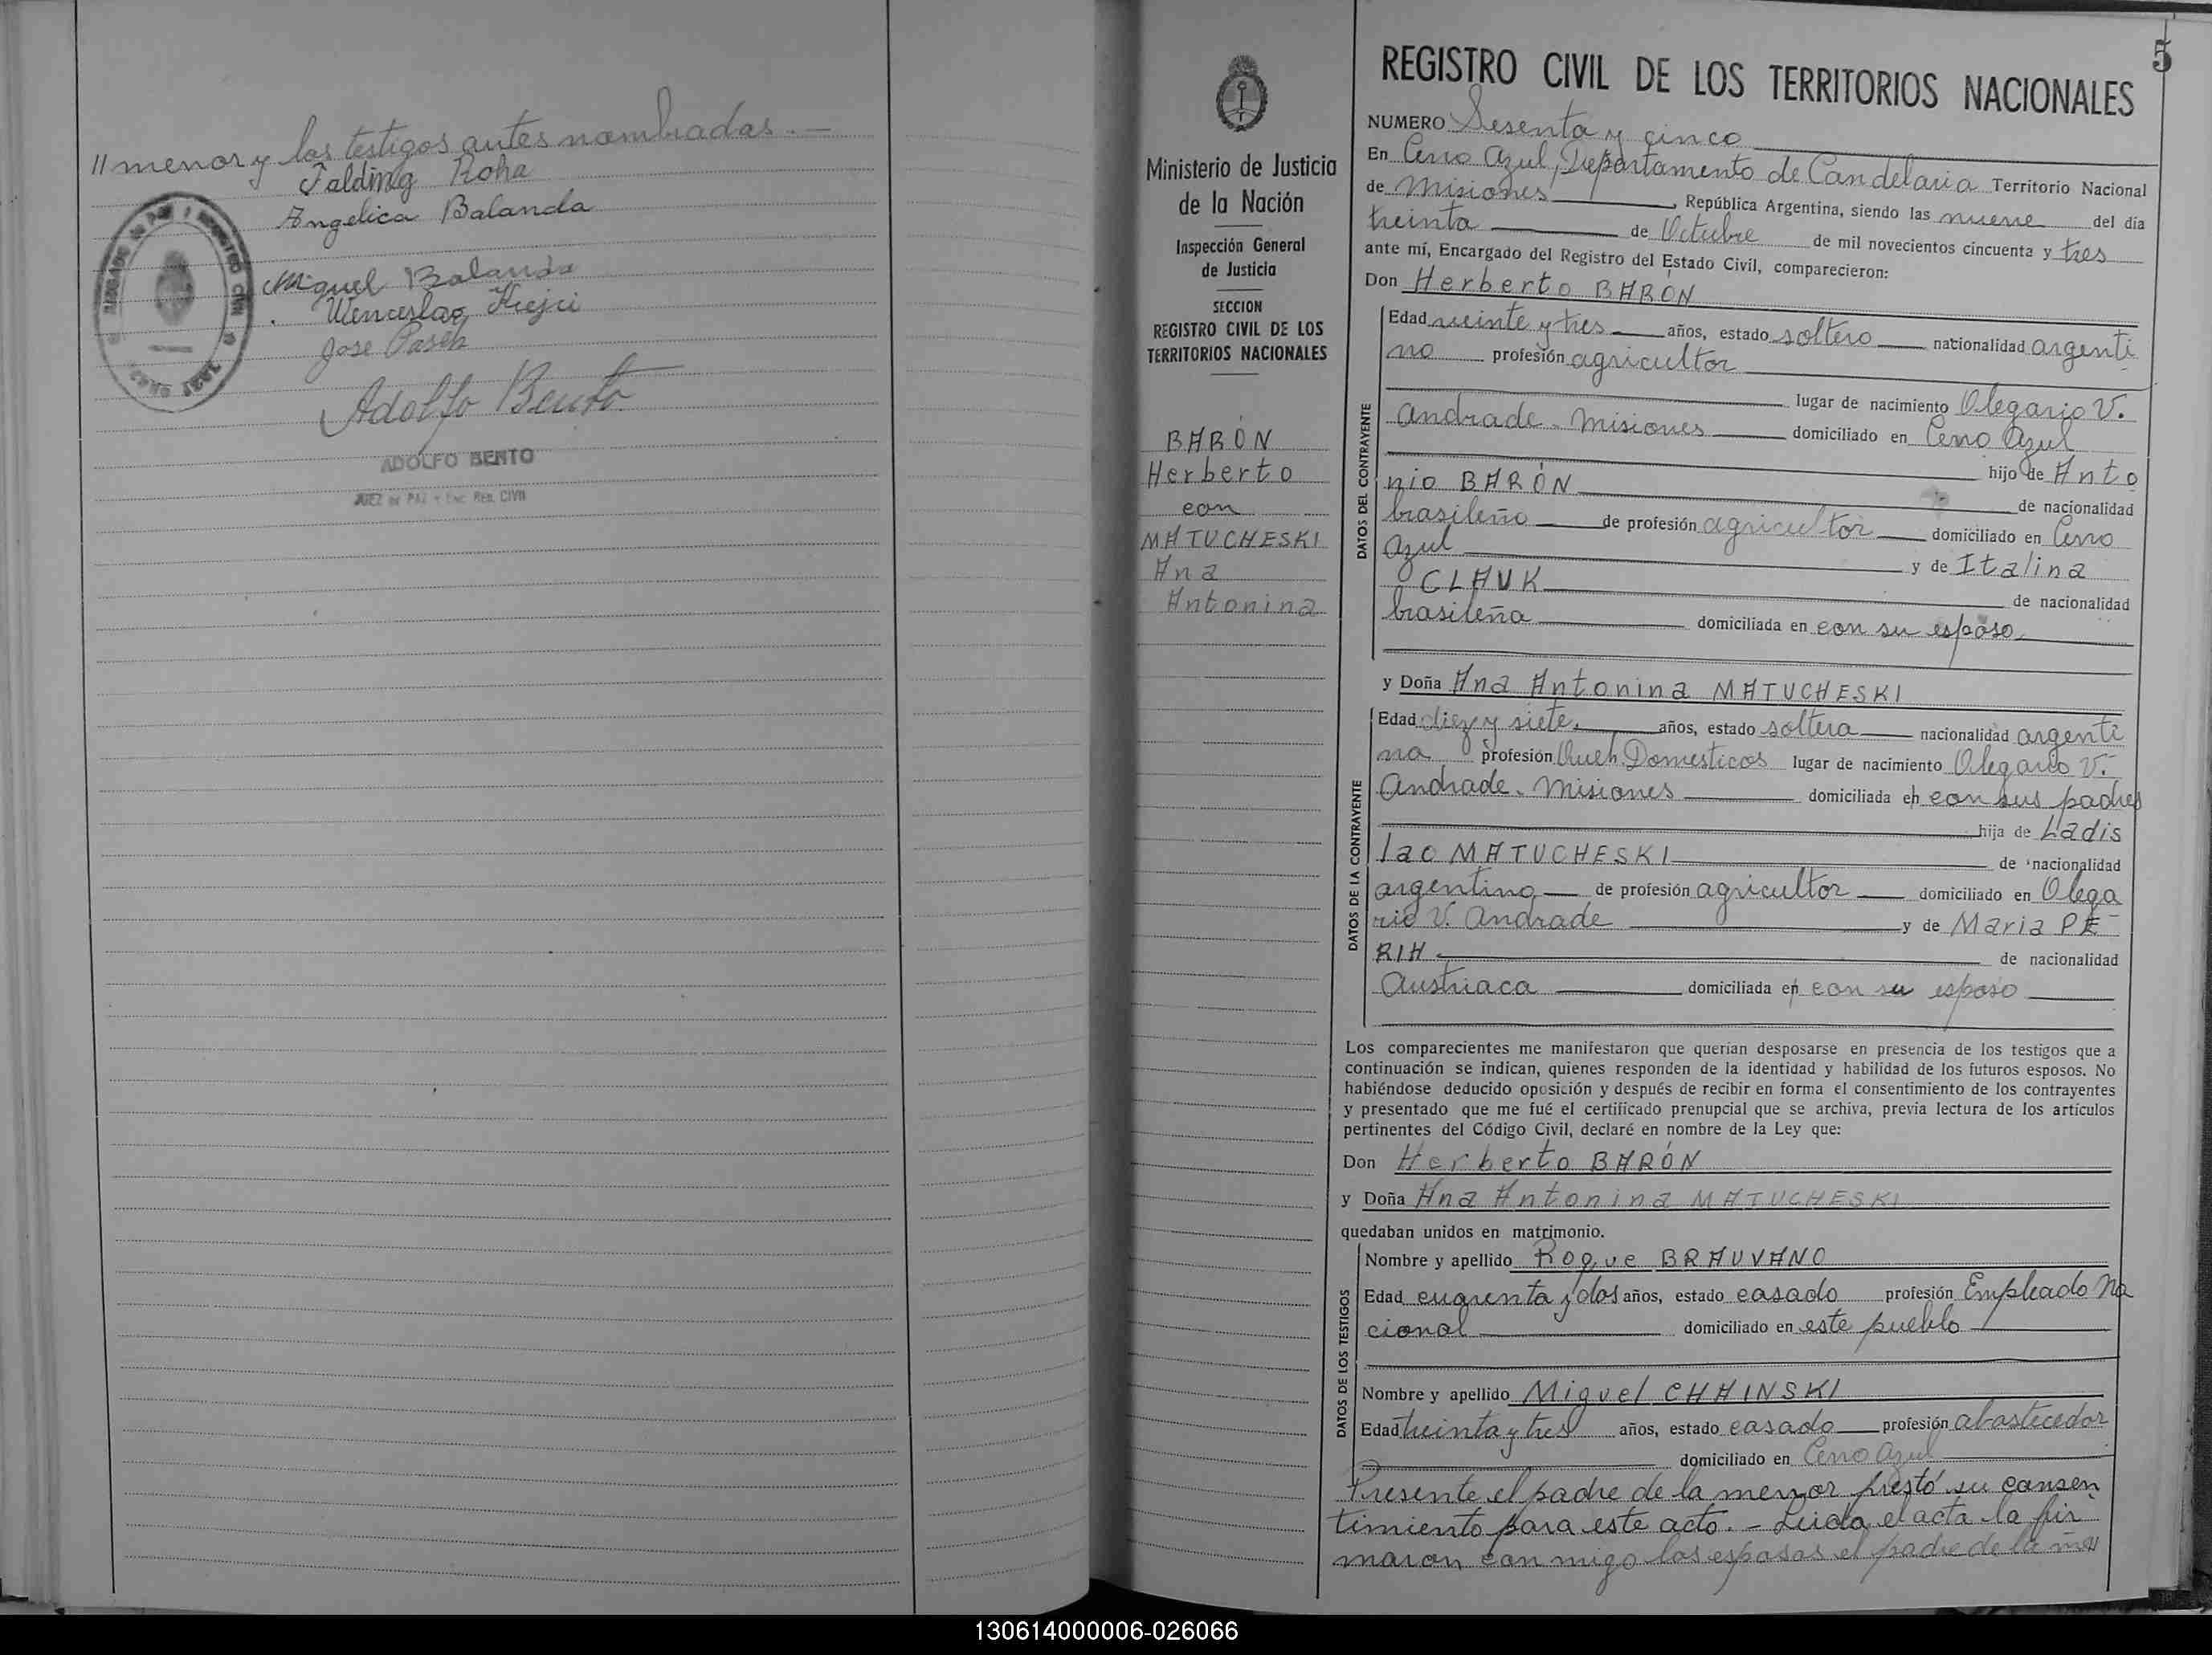 // menor y los testigos antes nombrados. —
Falding Roha
Angelica Balanda
Miguel Balanda
Wenceslao Krejci
Jose Pasek
Adolfo Bento
ADOLFO BENTO
JUEZ de PAZ y Enc. REG. CIVIL
Ministerio de Justicia
de la Nación
Inspección General
de Justicia
SECCION
REGISTRO CIVIL DE LOS
TERRITORIOS NACIONALES
BARÓN
Herberto
con
MATUCHESKI
Ana
Antonina
5
REGISTRO CIVIL DE LOS TERRITORIOS NACIONALES
NUMERO Sesenta y cinco
En Cerro Azul, Departamento de Candelaria Territorio Nacional
de Misiones, República Argentina, siendo las nueve del día
treinta de Octubre de mil novecientos cincuenta y tres
ante mí, Encargado del Registro del Estado Civil, comparecieron:
Don Herberto BARÓN
DATOS DEL CONTRAYENTE
Edad veinte y tres años, estado soltero nacionalidad argenti
no profesión agricultor
lugar de nacimiento Olegario V.
Andrade - Misiones domiciliado en Cerro Azul
hijo de Anto
nio BARÓN de nacionalidad
brasileño de profesión agricultor domiciliado en Cerro
Azul y de Italina
CLAUK de nacionalidad
brasileña domiciliada en con su esposo
y Doña Ana Antonina MATUCHESKI
DATOS DE LA CONTRAYENTE
Edad diez y siete años, estado soltera nacionalidad argenti
na profesión Queh. Domesticos lugar de nacimiento Olegario V.
Andrade - Misiones domiciliada en con sus padres
hija de Ladis
lao MATUCHESKI de nacionalidad
argentino de profesión agricultor domiciliado en Olega
rio V. Andrade y de Maria PE-
RIH de nacionalidad
Austriaca domiciliada en con su esposo
Los comparecientes me manifestaron que querían desposarse en presencia de los testigos que a
continuación se indican, quienes responden de la identidad y habilidad de los futuros esposos. No
habiéndose deducido oposición y después de recibir en forma el consentimiento de los contrayentes
y presentado que me fué el certificado prenupcial que se archiva, previa lectura de los artículos
pertinentes del Código Civil, declaré en nombre de la Ley que:
Don Herberto BARÓN
y Doña Ana Antonina MATUCHESKI
quedaban unidos en matrimonio.
DATOS DE LOS TESTIGOS
Nombre y apellido Roque BRAUVANO
Edad cuarenta y dos años, estado casado profesión Empleado Na
cional domiciliado en este pueblo
Nombre y apellido Miguel CHAINSKI
Edad treinta y tres años, estado casado profesión abastecedor
domiciliado en Cerro Azul
Presente el padre de la menor prestó su consen
timiento para este acto. - Leida el acta la fir
maron con migo los esposos el padre de la me//
130614000006-026066